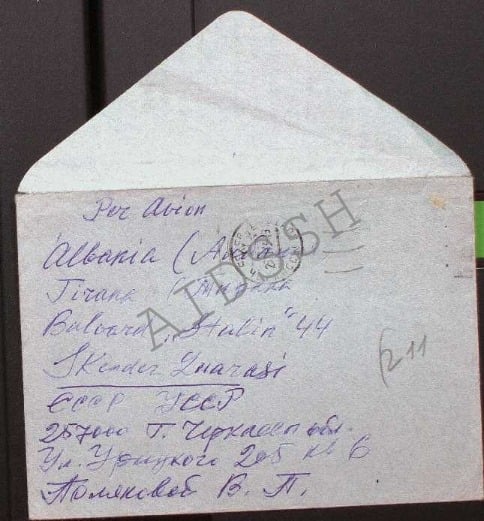 Par Avion
Albania (
Tirana (Тирана
Bulvard „Stalin“ 44
Skender Luarasi
СССР УССР
257000 г. Черкассы обл.
Ул. Урицкого 205 кв 6
Поляковой В. П.
211
AIDSSH